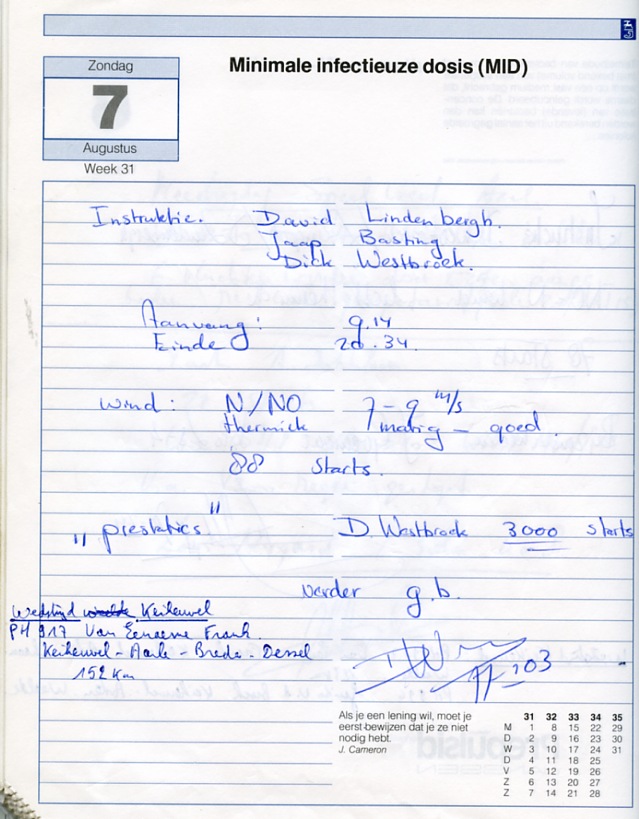 Zondag
7
Augustus
Week 31
Minimale infectieuze dosis (MID)
Instruktie. David Lindenbergh.
Jaap Basting
Dick Westbroek.
Aanvang: 9.14
Einde 20.34.
Wind: N/NO 7-9 m/s
thermiek matig - goed.
88 starts.
"prestaties" D. Westbroek 3000 starts
Verder g.b.
Wedstrijd Keiheuvel
PH 917 Van Frank.
Keiheuvel - Aarle - Breda - Dessel
152 Km
Als je een lening wil, moet je
eerst bewijzen dat je ze niet
nodig hebt.
J. Cameron
31 32 33 34 35
M 1 8 15 22 29
D 2 9 16 23 30
W 3 10 17 24 31
D 4 11 18 25
V 5 12 19 26
Z 6 13 20 27
Z 7 14 21 28